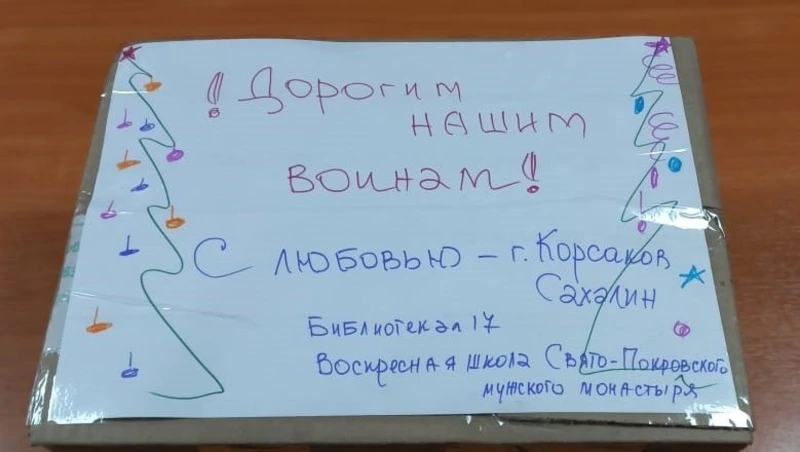 ! Дорогим
нашим
воинам!
С любовью – г. Корсаков
Сахалин
Библиотека 17
Воскресная школа Свято-Покровского
мужского монастыря